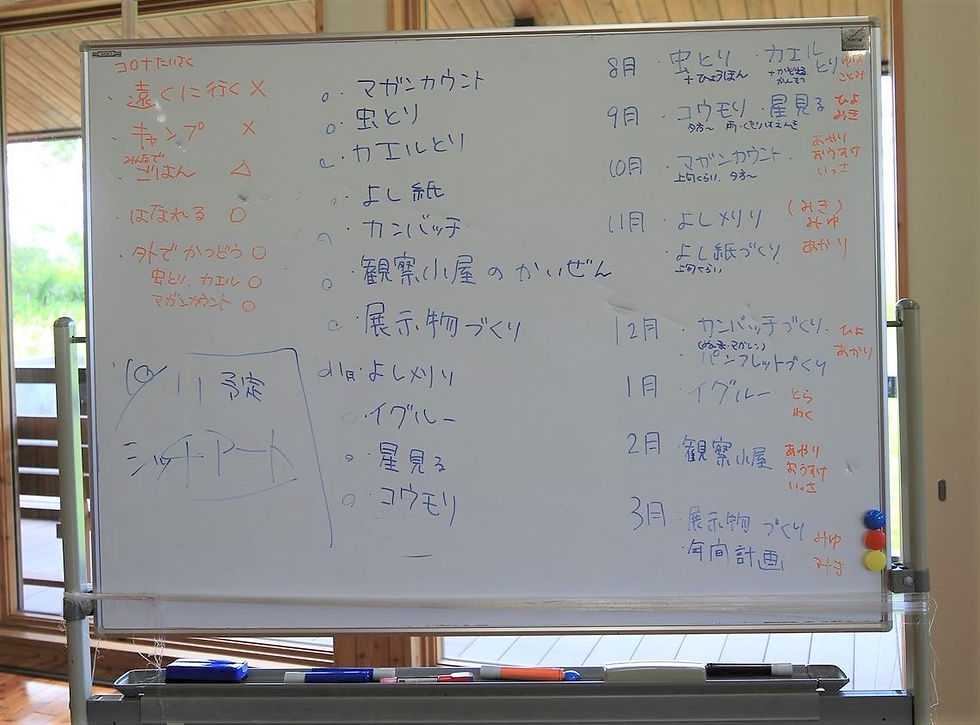 コロナたいさく
・遠くに行く ×
・キャンプ ×
みんなで
・ごはん △
・はなれる ○
・外でかつどう ○
虫とり、カエル ○
マガンカウント ○
10/11 予定
ミットアート
○・マガンカウント
○・虫とり
○・カエルとり
○・よし紙
○・カンバッチ
○・観察小屋のかいぜん
○・展示物づくり
○11月・よしメリリ
○・イグルー
○・星見る
○・コウモリ
8月 ・虫とり ・カエルとり
+ひょうほん
ことみ
9月 ・コウモリ ・星見る ひよ
夕方〜 みき
10月 ・マガンカウント あやり
上旬くらい、夕方〜 おうすけ
いっさ
11月 ・よしメリリ (みき)
みゆ
・よし紙づくり あかり
上旬くらい
12月 ・カンバッチづくり ひよ
・パンフレットづくり あかり
1月 ・イグルー とら
わく
2月 ・観察小屋 あやり
おうすけ
いっさ
3月 ・展示物づくり みゆ
・年間計画 みき